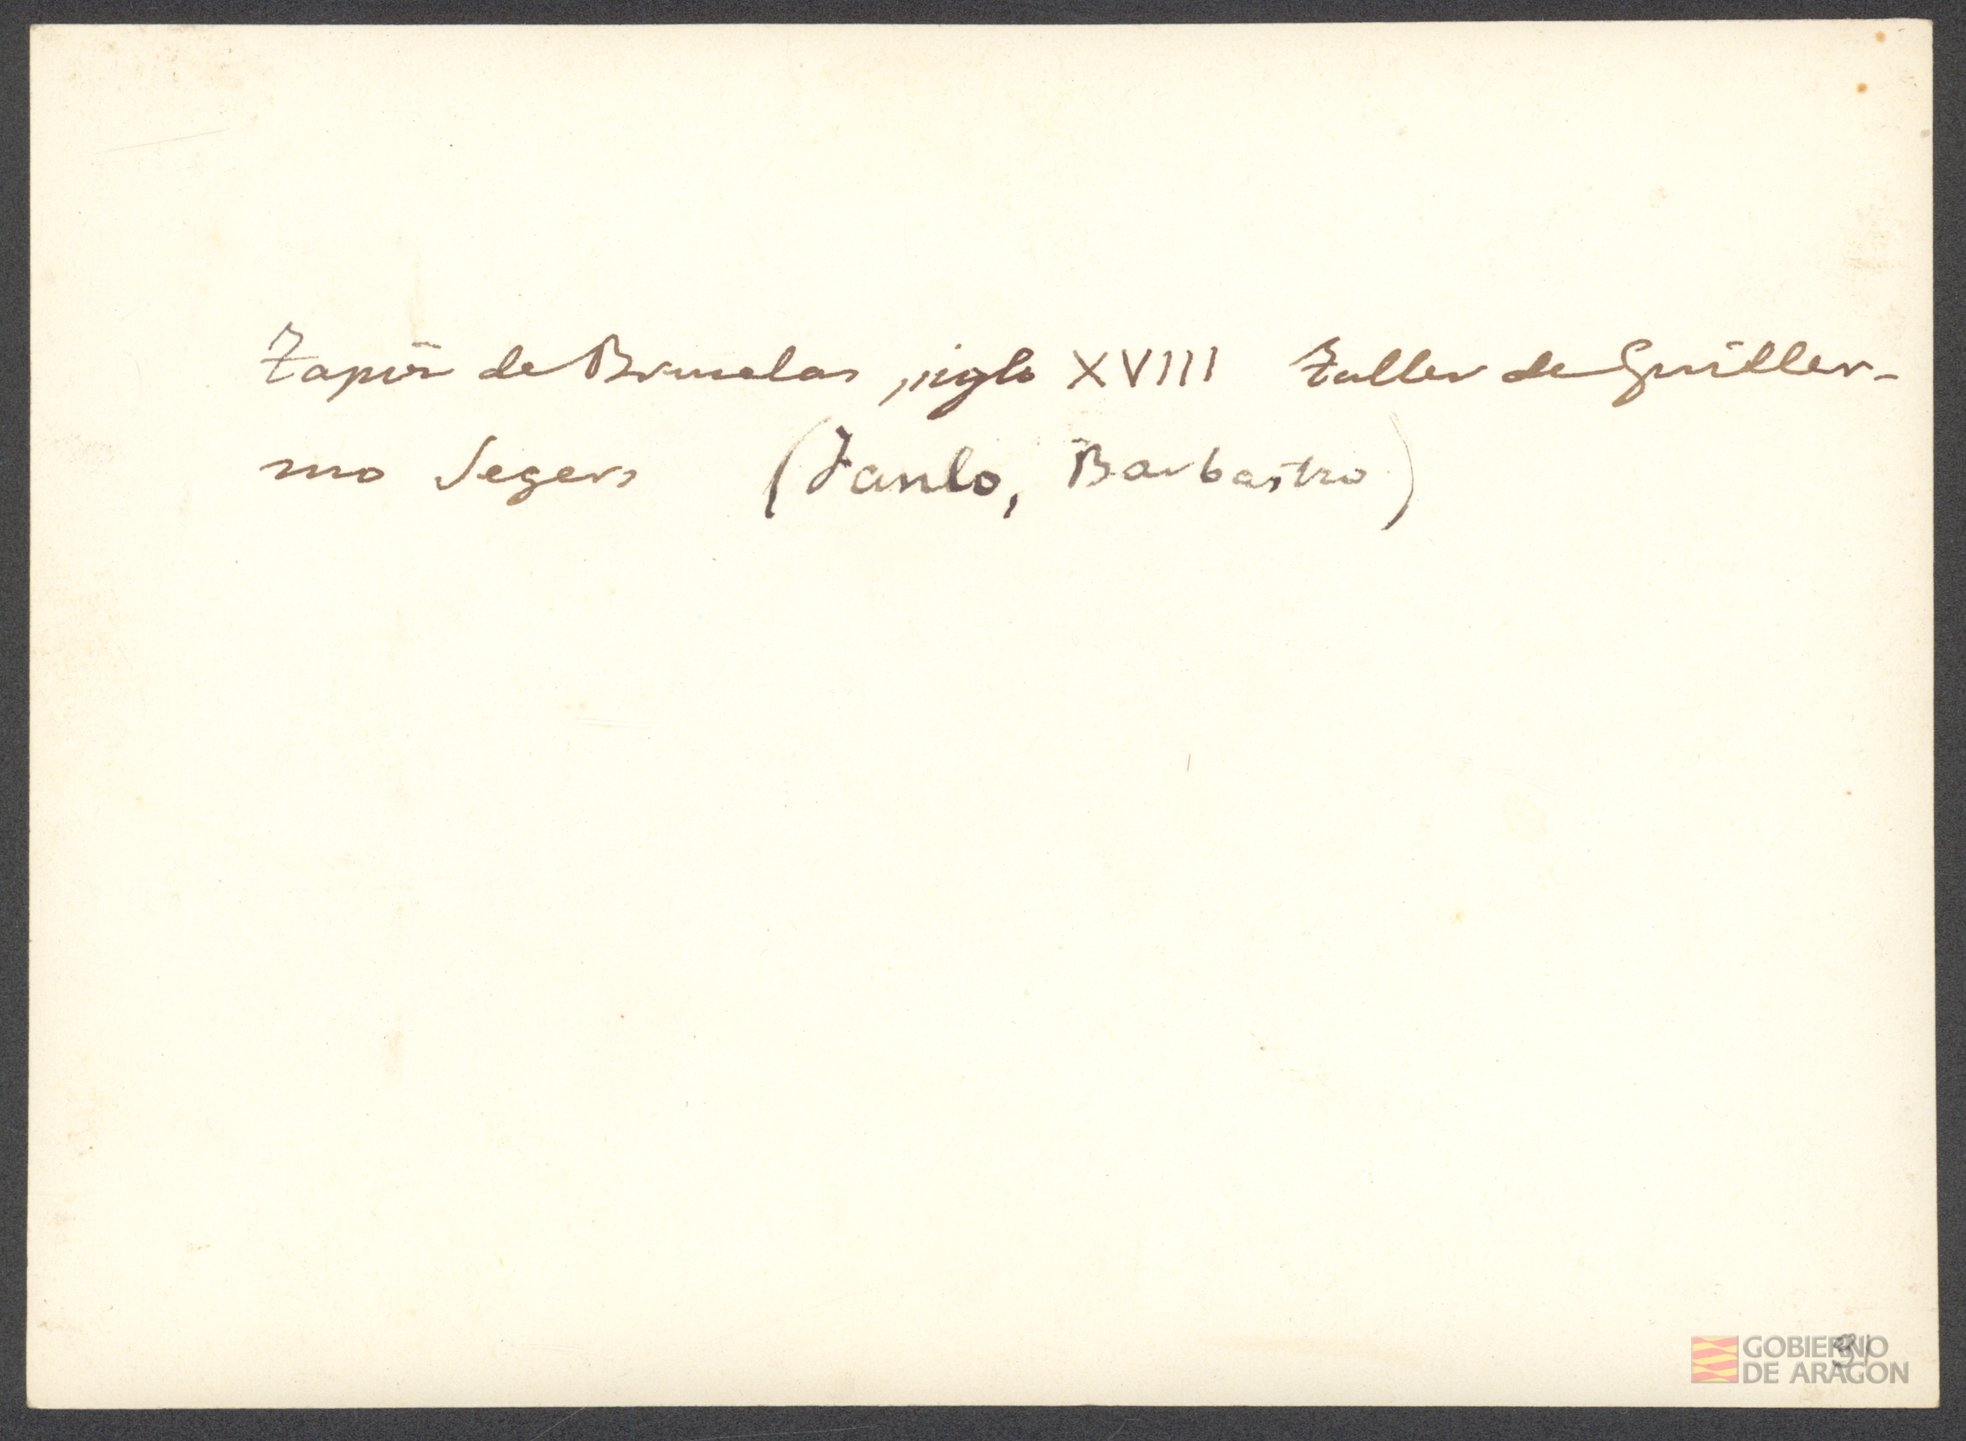 Tapiz de Bruselas, siglo XVIII Taller de Guiller-
mo Segers (Fanlo, Barbastro)
GOBIERNO
DE ARAGON